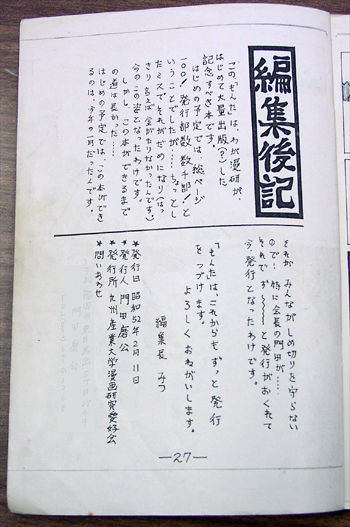 編集後記
この、もんた」は、わが漫研が、
はじめて大量出版(?)した
記念すべき本です。
はじめの予定では、総ページ
一〇〇!発行部数数千部!と
いうことでしたが……ちょっとし
たミスで、それがだめになり(はっ
きり言えば金がたりなかったんです。)
今のこの姿となったわけです。
しかし、この本ができるまで
の道は長かった……
はじめの予定では、この本ができ
るのは、今年の一月だったんです。
それが みんながしめ切りを守らない
ので!特に会長の門田が……
それでず〜〜〜っと発行がおくれて
今、発行となったわけです。
「もんた」は、これからもずっと発行
をつづけます。
よろしくおねがいします。
編集長 みつ
★発行日 昭和52年2月11日
★発行人 門田 磨公
★発行所 九州産業大学漫画研究愛好会
★問いあわせ
—27—